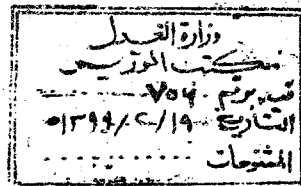 وزارة العدل
مكتب الوزير
قيد برقم ٧٥٦
التاريخ ١٣٩٩/٢/١٩هـ
المشفوعات